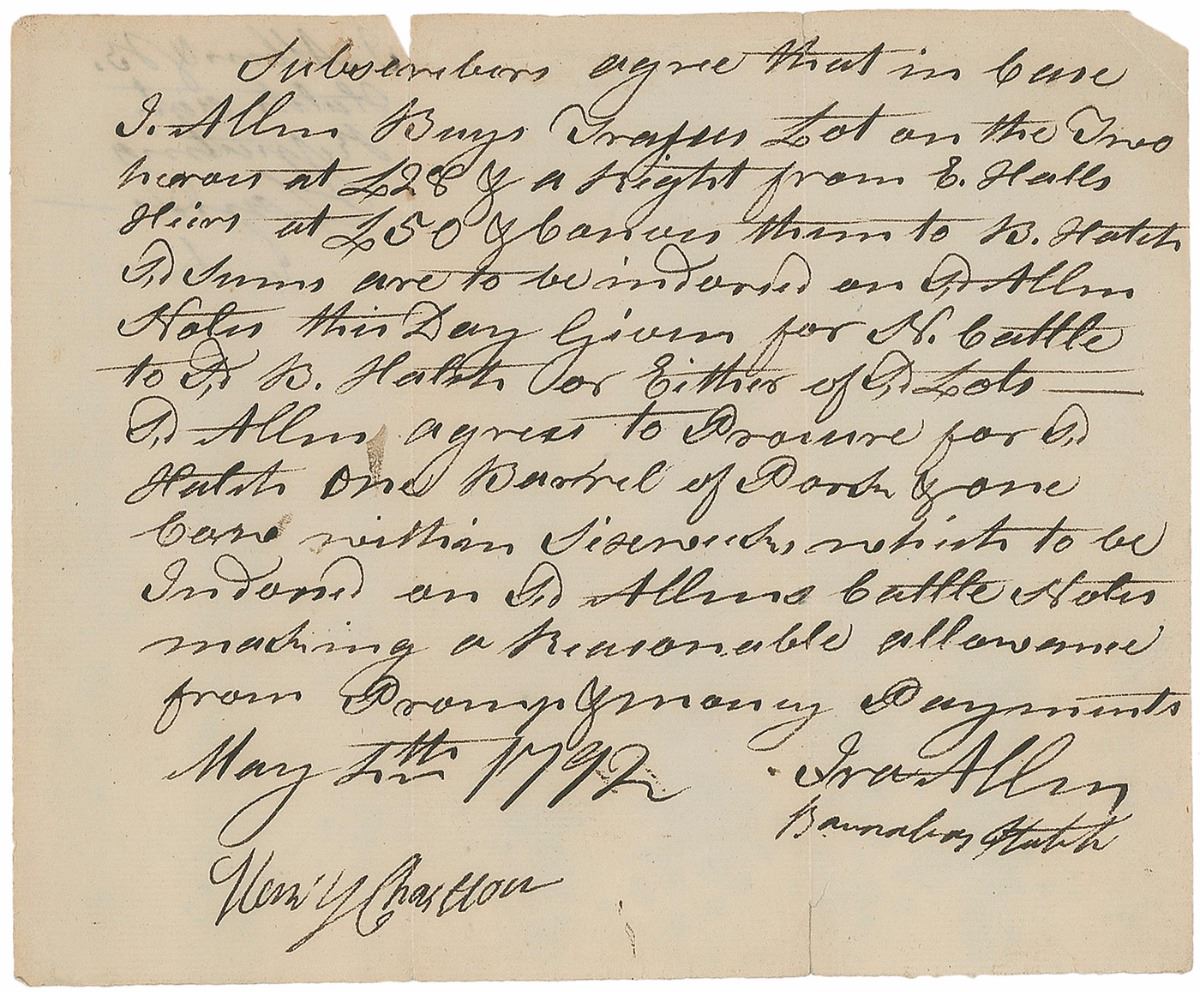 Subscribers agree that in Case
I. Allen Buys Lot on the Two
heroes at £28 & a Right from E. Halls
Heirs at £50 & Convs them to B. Hatch
Sd Sums are to be indorsed on Sd Allen
Notes this Day Given for N. Cattle
to Sd B. Hatch or Either of Sd Lots —
Sd Allen agrees to Procure for Sd
Hatch One Barrel of Pork & one
within Sixe weeks which to be
Indorsd on Sd Allens Cattle Notes
making a Reasonable allowance
from Promp & money Payments
May 1792
Ira Allen
Barnabas Hatch
Henry